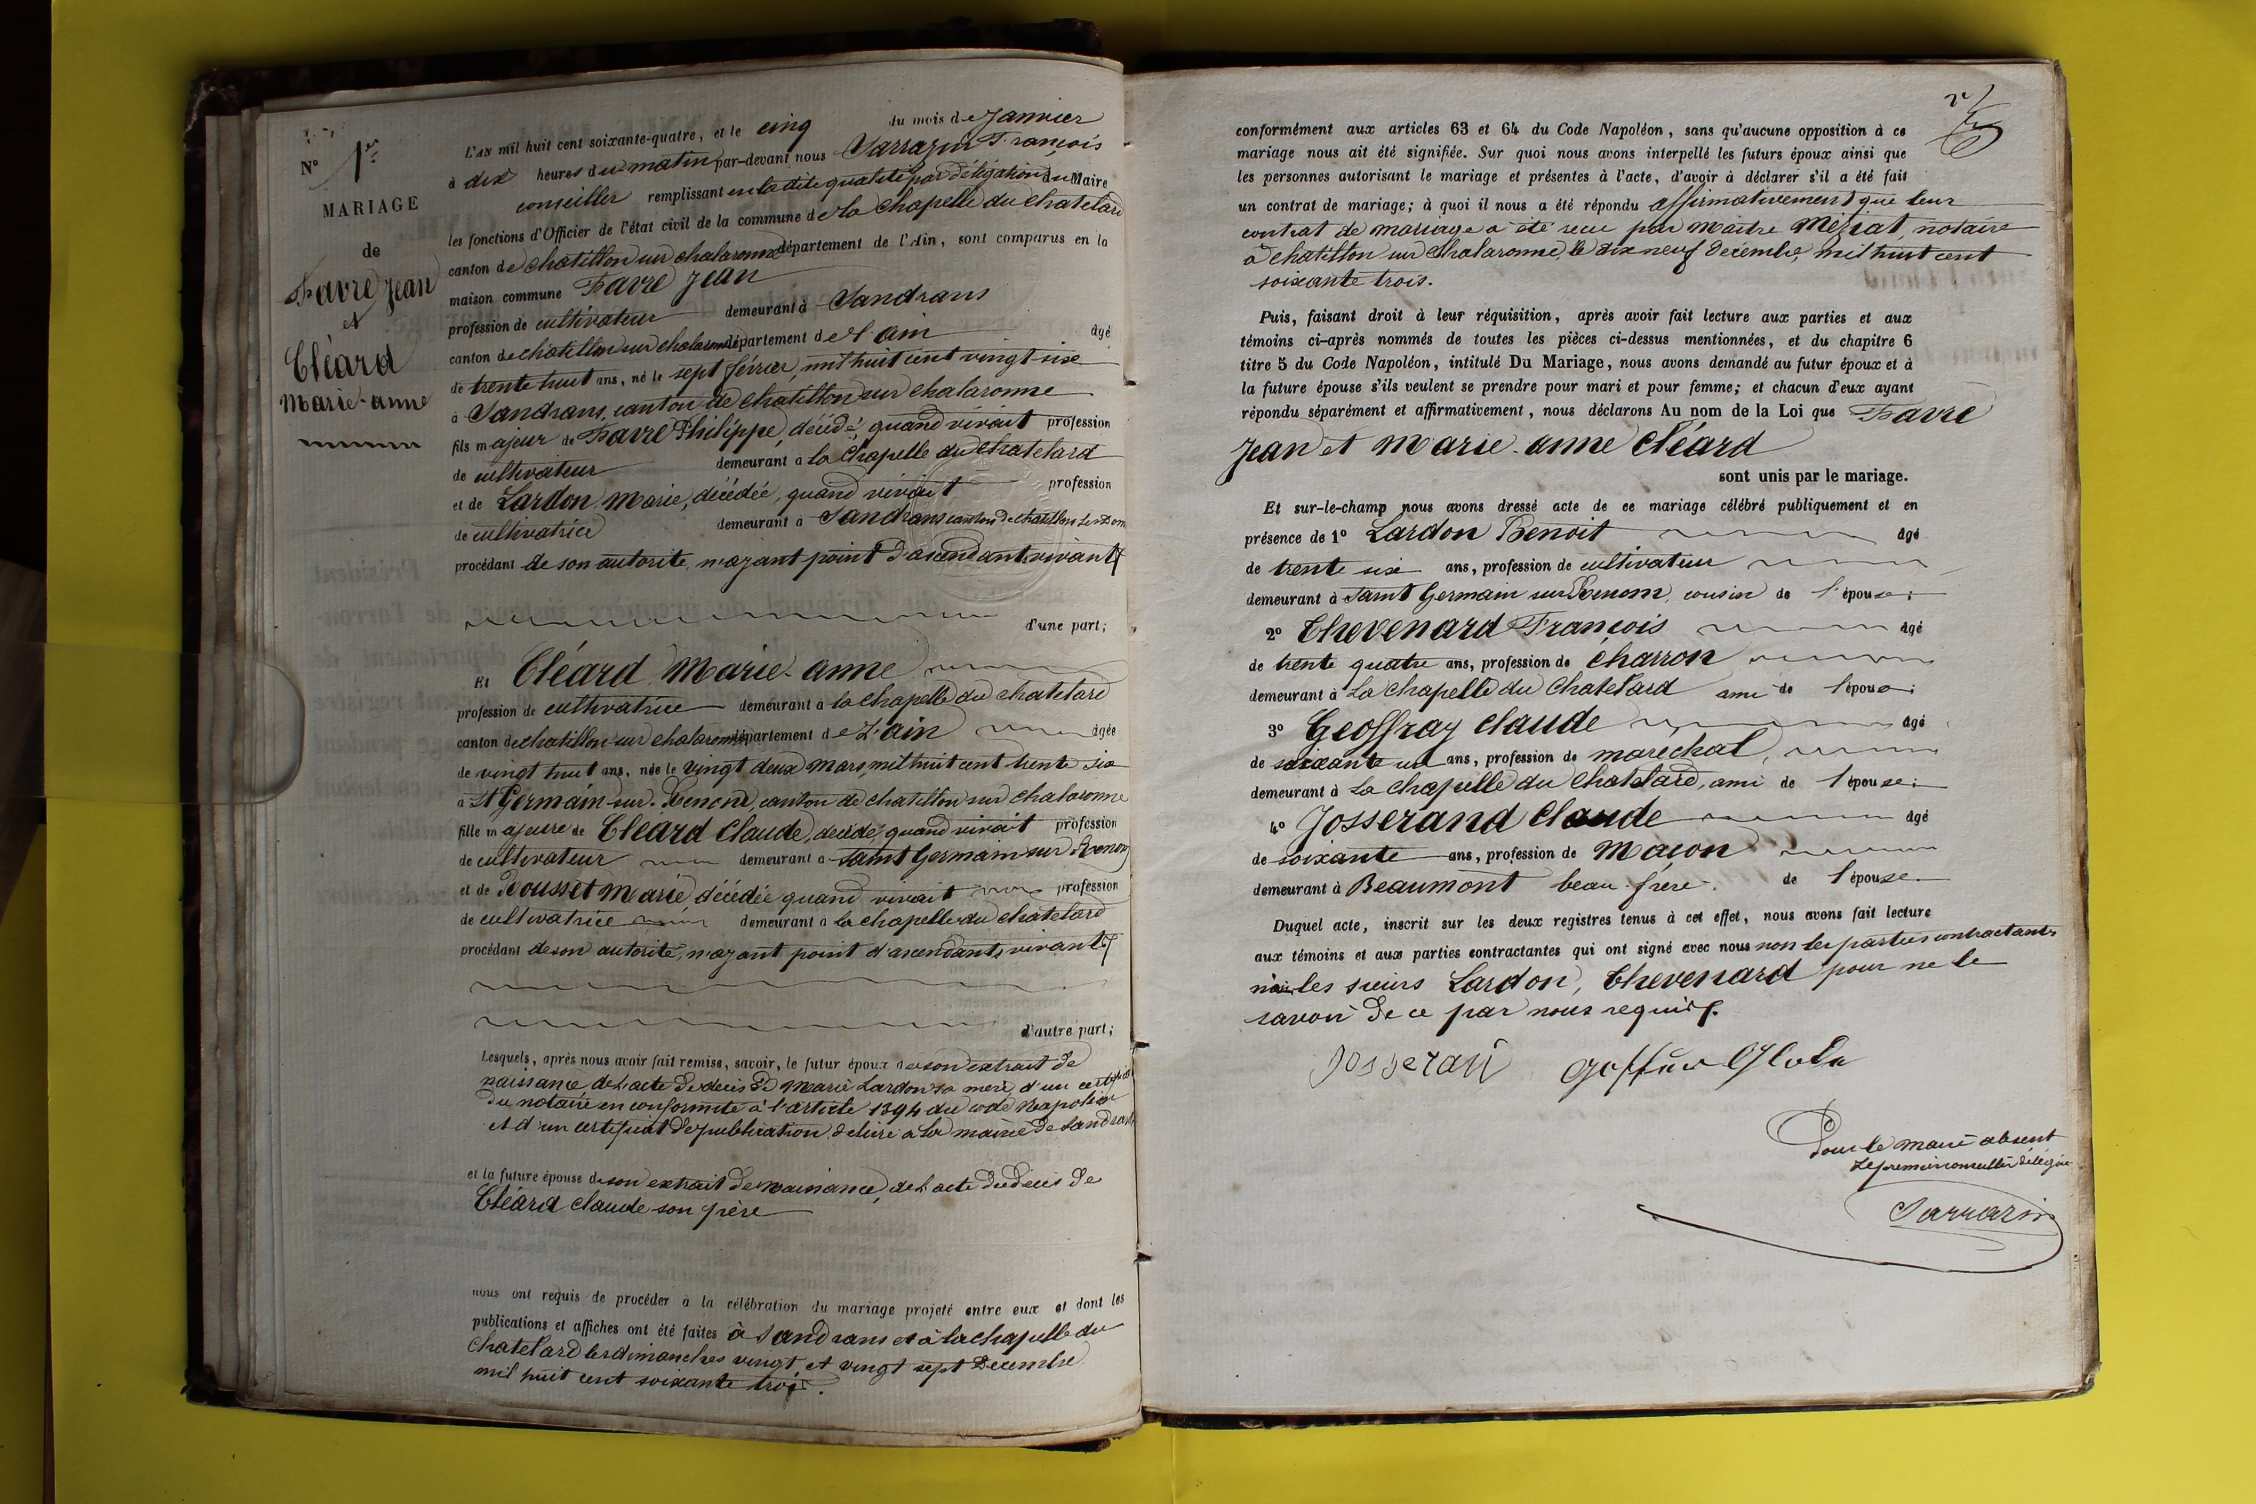 N° 1er
MARIAGE
de
Favre Jean
et
Cléard
Marie-anne
L'AN mil huit cent soixante-quatre, et le cinq du mois de Janvier
à dix heures du matin par-devant nous Sarrazin François
conseiller remplissant en ladite qualité par délégation du Maire
les fonctions d'Officier de l'état civil de la commune de la Chapelle du Chatelard
canton de chatillon sur chalaronne département de l'Ain, sont comparus en la
maison commune Favre Jean
profession de cultivateur demeurant à Sandrans
canton de chatillon sur chalaronne département de l'ain âgé
de trente huit ans, né le sept février, mil huit cent vingt six
à Sandrans, canton de chatillon sur chalaronne
fils majeur de Favre Philippe, décédé, quand vivait profession
de cultivateur demeurant à la Chapelle du Chatelard
et de Lardon Marie, décédée, quand vivait profession
de cultivatrice demeurant à Sandrans canton de chatillon
procédant de son autorité, n'ayant point d'ascendants vivants
d'une part;
Et Cléard Marie-anne
profession de cultivatrice demeurant à la chapelle du chatelard
canton de chatillon sur chalaronne département de L'ain âgée
de vingt huit ans, née le vingt deux Mars, mil huit cent trente six
à St Germain-sur-Renom, canton de chatillon sur chalaronne
fille majeure de Cléard Claude, décédé, quand vivait profession
de cultivateur demeurant à Saint Germain sur Renom
et de Rousset Marie décédée quand vivait profession
de cultivatrice demeurant à la chapelle du chatelard
procédant de son autorité, n'ayant point d'ascendants vivants
d'autre part;
Lesquels, après nous avoir fait remise, savoir, le futur époux de son extrait de
naissance de l'acte de décès de Marie Lardon sa mere, d'un certificat
du notaire en conformité à l'article 1394 du code Napoléon
et d'un certificat de publication délivré à la mairie de Sandrans
et la future épouse de son extrait de naissance, de l'acte de décès de
Cléard Claude son père
nous ont requis de procéder à la célébration du mariage projeté entre eux et dont les
publications et affiches ont été faites à Sandrans et à la chapelle du
chatelard les dimanches vingt et vingt sept Decembre
mil huit cent soixante trois.
conformément aux articles 63 et 64 du Code Napoléon, sans qu'aucune opposition à ce
mariage nous ait été signifiée. Sur quoi nous avons interpellé les futurs époux ainsi que
les personnes autorisant le mariage et présentes à l'acte, d'avoir à déclarer s'il a été fait
un contrat de mariage; à quoi il nous a été répondu affirmativement que leur
contrat de mariage a été recu par maître Méziat, notaire
à chatillon sur Chalaronne, le dix neuf décembre, mil huit cent
soixante trois.
Puis, faisant droit à leur réquisition, après avoir fait lecture aux parties et aux
témoins ci-après nommés de toutes les pièces ci-dessus mentionnées, et du chapitre 6
titre 5 du Code Napoléon, intitulé Du Mariage, nous avons demandé au futur époux et à
la future épouse s'ils veulent se prendre pour mari et pour femme; et chacun d'eux ayant
répondu séparément et affirmativement, nous déclarons Au nom de la Loi que Favre
Jean et Marie-anne Cléard
sont unis par le mariage.
Et sur-le-champ nous avons dressé acte de ce mariage célébré publiquement et en
présence de 1° Lardon Benoit âgé
de trente six ans, profession de cultivateur
demeurant à Saint Germain sur Renom, cousin de l'épouse;
2° Chevenard François âgé
de trente quatre ans, profession de charron
demeurant à La Chapelle du Chatelard ami de l'époux;
3° Geoffray Claude âgé
de soixante un ans, profession de maréchal,
demeurant à La Chapelle du Chatelard, ami de l'épouse;
4° Josserand Claude âgé
de soixante ans, profession de Maçon
demeurant à Beaumont beau-frère de l'épouse.
Duquel acte, inscrit sur les deux registres tenus à cet effet, nous avons fait lecture
aux témoins et aux parties contractantes qui ont signé avec nous non les parties contractantes
les sieurs Lardon, Chevenard pour ne le
savoir de ce par nous requis.
Josseran
Pour le maire absent
Le premier conseiller délégué
Sarrazin